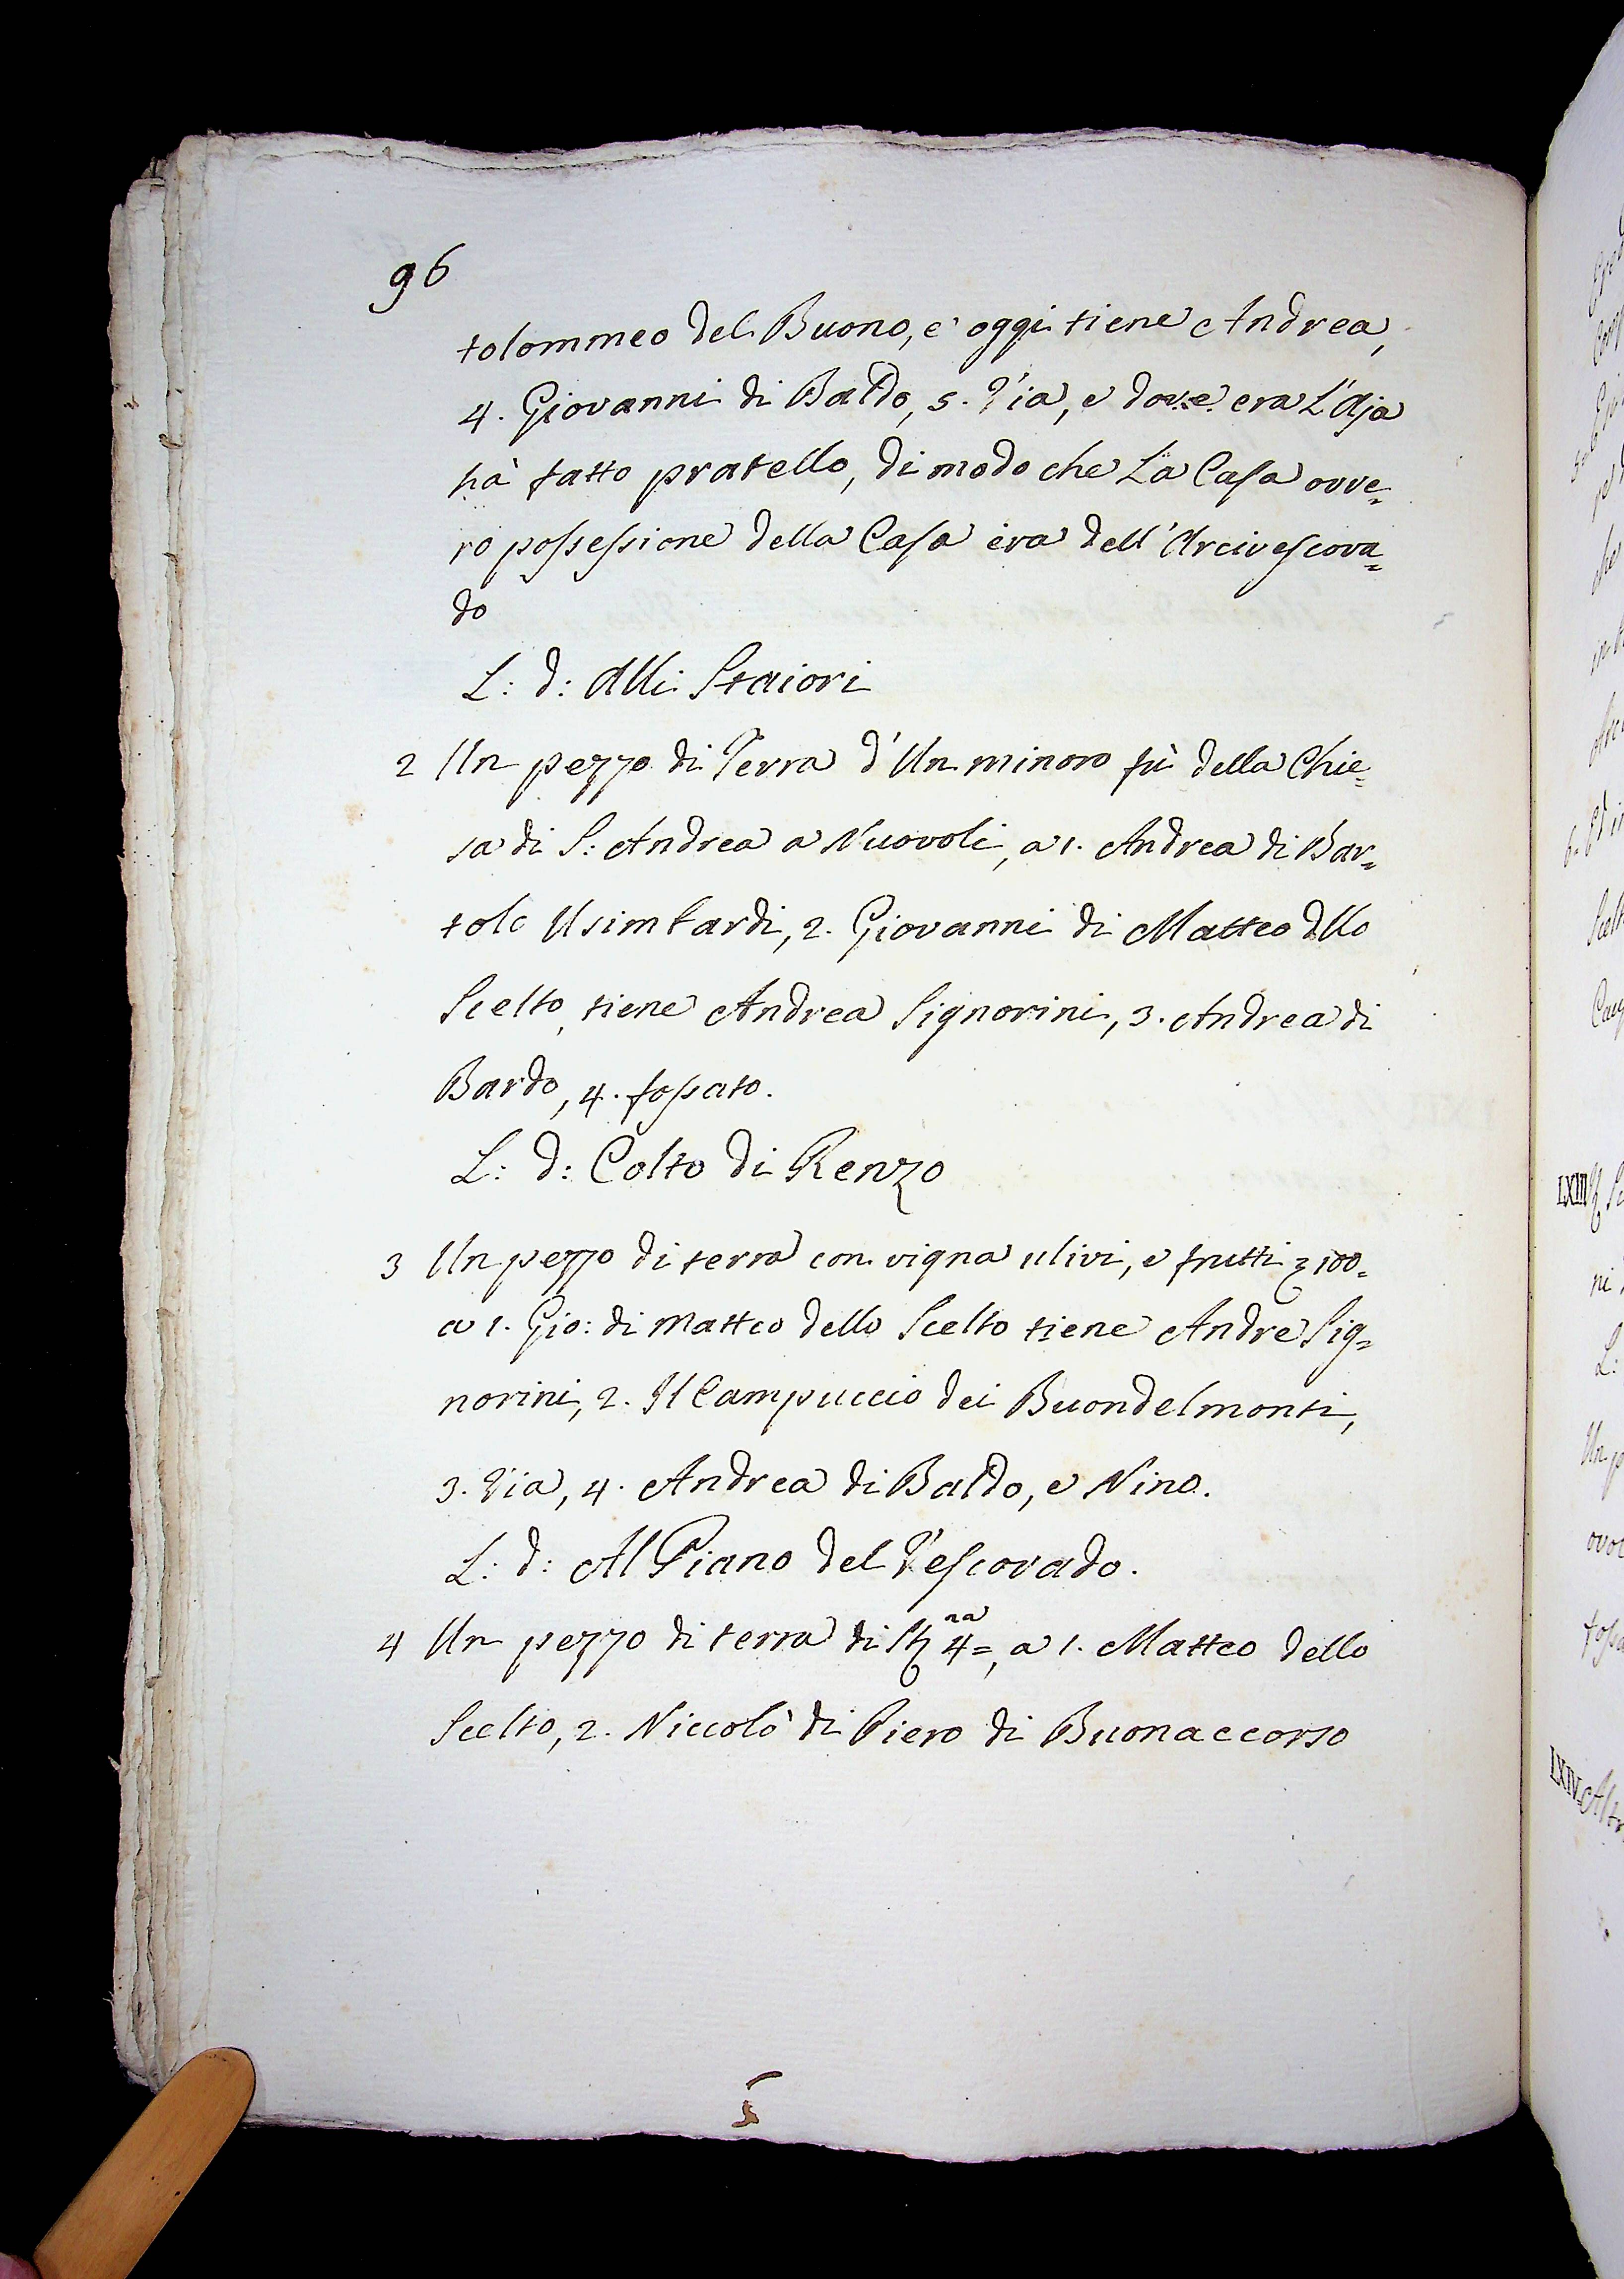 96
tolommeo del Buono, e oggi tiene Andrea,
4. Giovanni di Baldo, 5. Via, e dove era L'Aja
hà fatto pratello, di modo che La Casa ovve=
ro possessione della Casa era dell'Arcivescova=
do
L: d: Alli Staiori
2 Un pezzo di Terra d'Un minoro fù della Chie=
sa di S: Andrea a Nuovoli, a 1. Andrea di Bar=
tolo Usimbardi, 2. Giovanni di Matteo dllo
Scelto, tiene Andrea Signorini, 3. Andrea di
Bardo, 4. fossato.
L: d: Colto di Renzo
3 Un pezzo di terra con vigna ulivi, e frutti 100=
a 1. Gio: di Matteo dello Scelto tiene Andre Sig=
norini, 2. Il Campuccio dei Buondelmonti,
3. Via, 4. Andrea di Baldo, e Nino.
L: d: Al Piano del Vescovado.
4 Un pezzo di terra di 4=, a 1. Matteo dello
Scelto, 2. Niccolò di Piero di Buonaccorso
LXIII
L:
LXIV